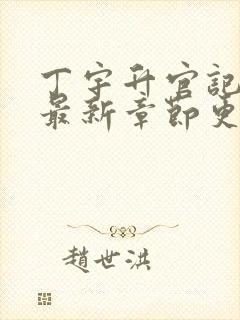 丁宇升官記
最新章節更
趙世洪